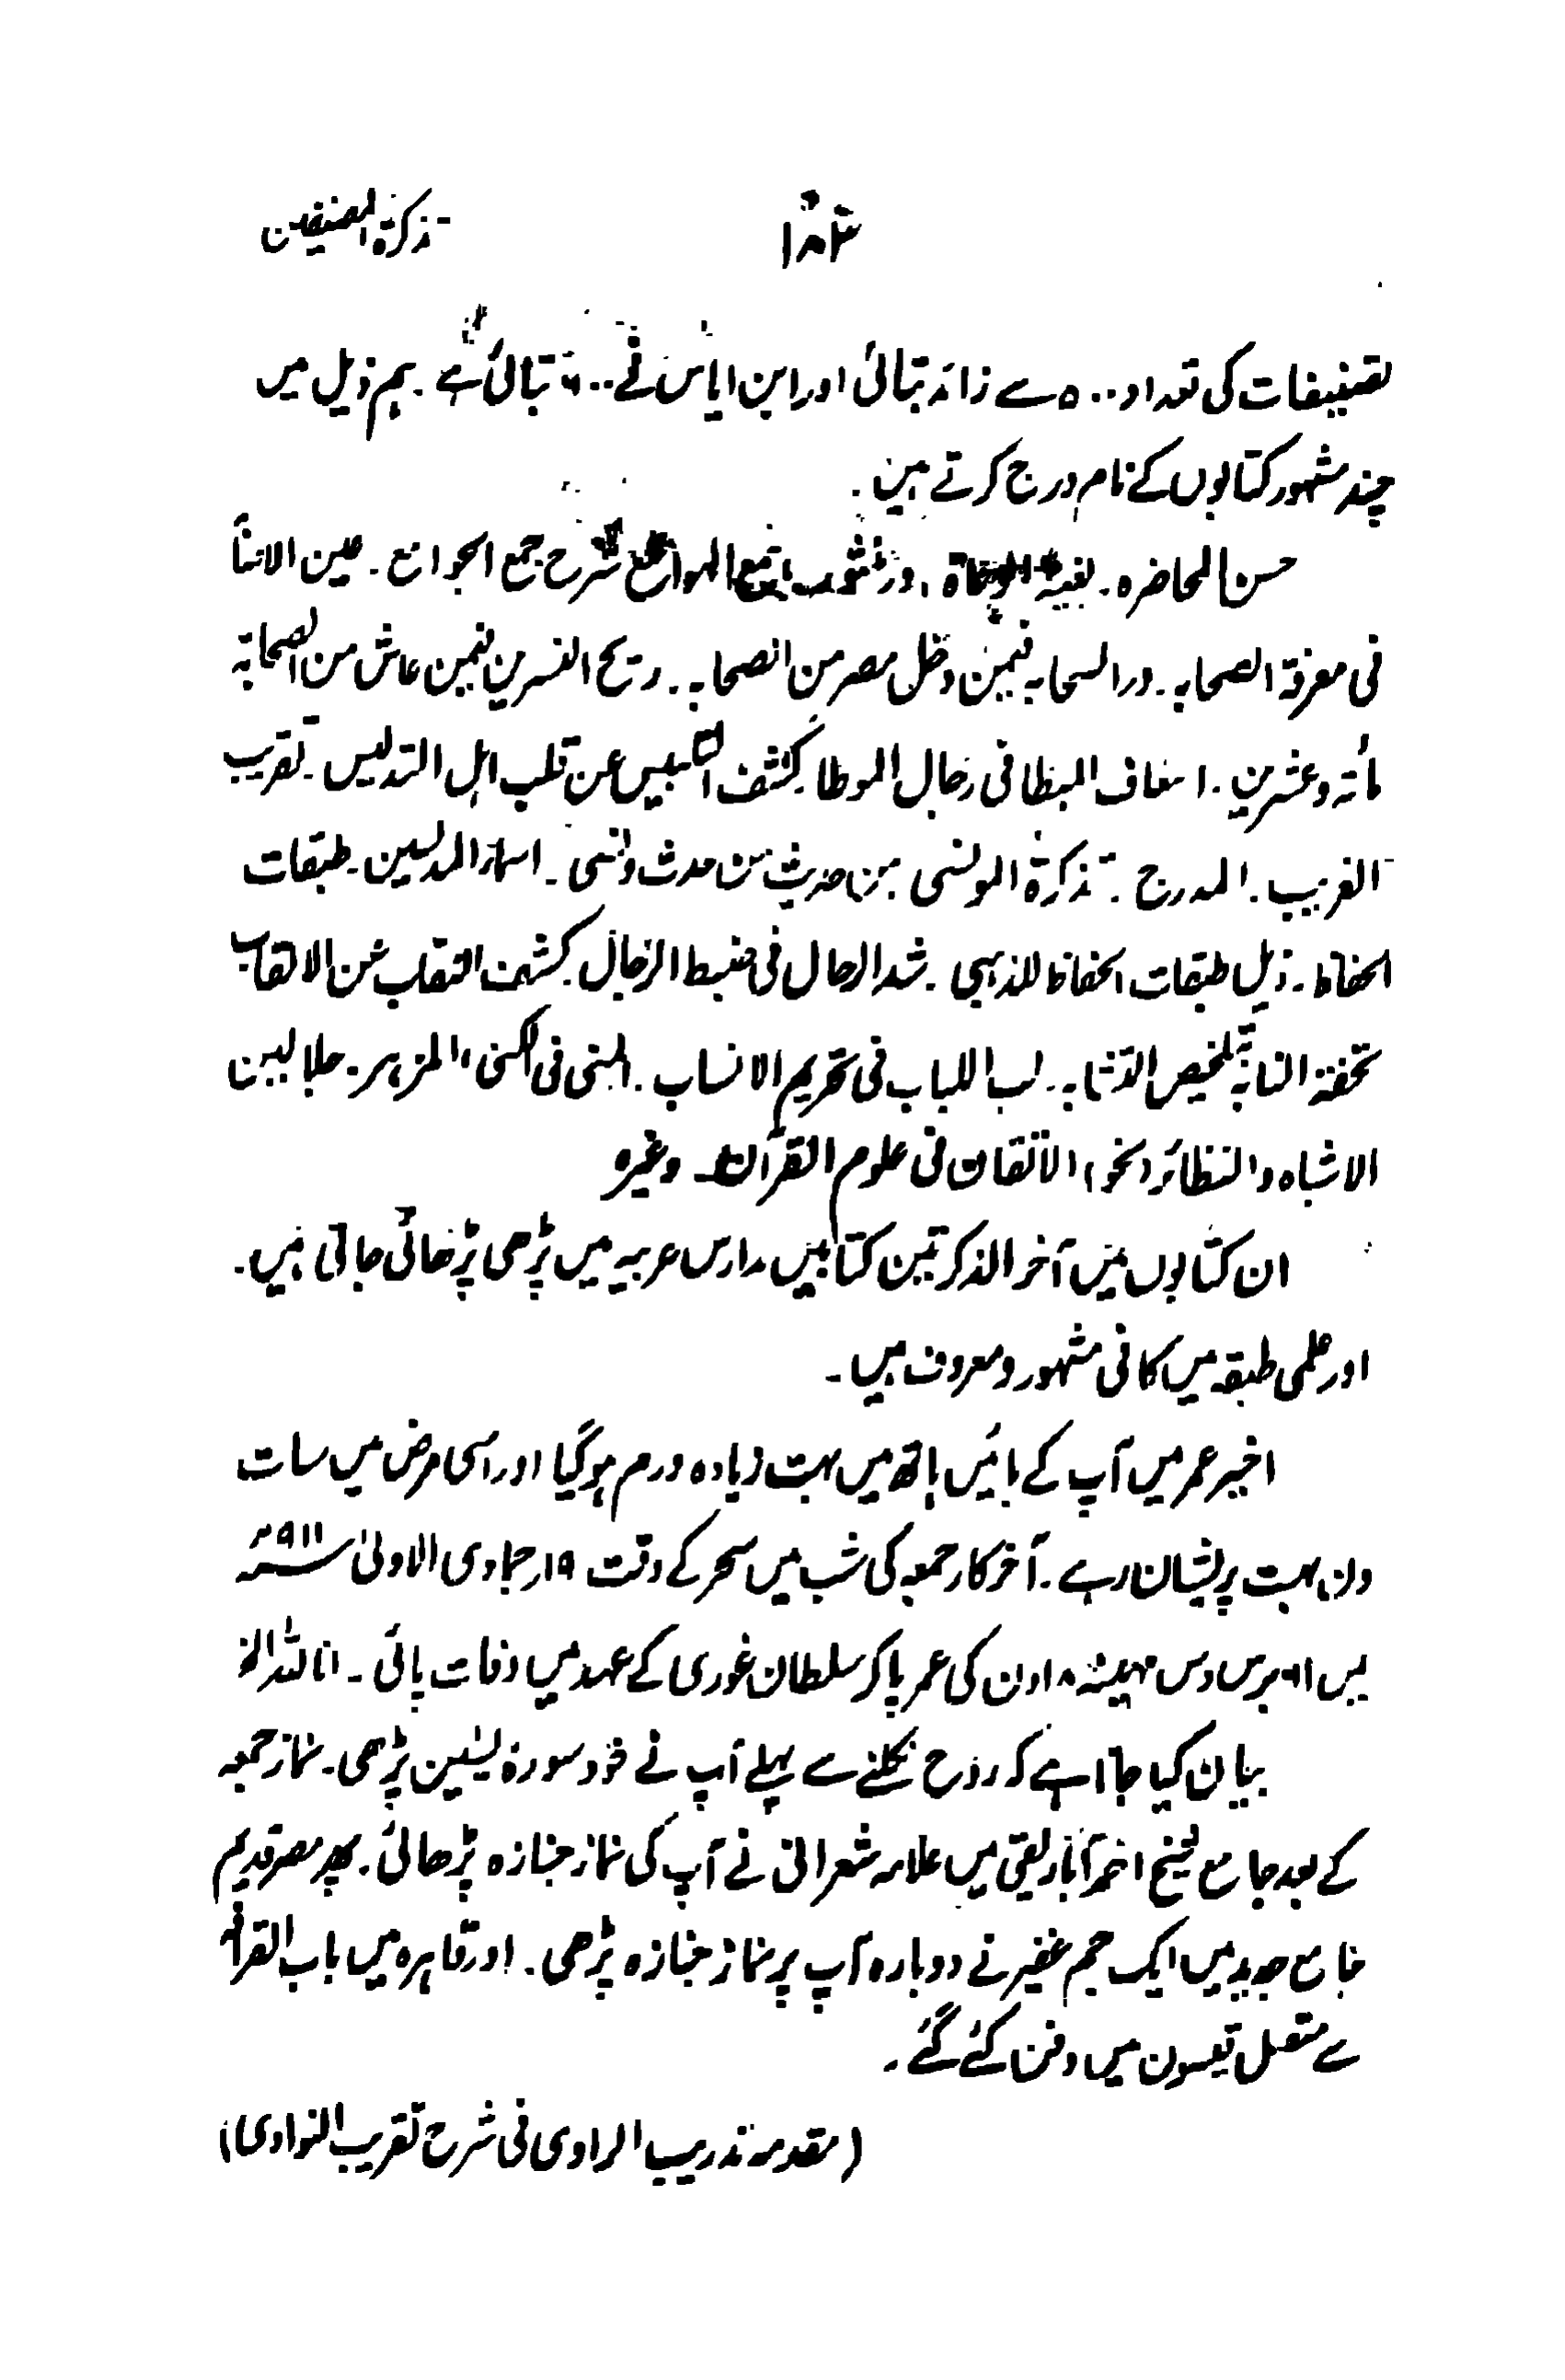 تذکرۃ المصنفین
۱۸۴
تصنیفات کی تعداد ۵۰۰ سے زائد بتائی اور ابن ایاس نے ۶۰۰ بتائی ہے ۔ ہم ذیل میں
چند مشہور کتابوں کے نام درج کرتے ہیں ۔
حسن المحاضرہ ۔ بغیۃ الوعاۃ ، درمنثور ۔ ہمع الہوامع شرح جمع الجوامع ۔ عین الاصابۃ
فی معرفۃ الصحابہ ۔ در السحابہ فیمن دخل مصر من الصحابہ ۔ ریح النسرین فیمن عاش من الصحابۃ
مأتہ وعشرین ۔ اسعاف المبطا فی رجال الموطا ۔ کشف التلبیس عن قلب اہل التدلیس ۔ تقریب
الغریب ۔ المدرج ۔ تذکرۃ الموتسی بمن حدیث من حدث ونسی ۔ اسماء المدلسین ۔ طبقات
الحفاظ ۔ ذیل طبقات الحفاظ للذہبی ۔ شد الرحال فی ضبط الرجال ۔ کشف النقاب عن الالقاب
تحفۃ النابہ تلخیص المتشابہ ۔ لب اللباب فی تحریم الانساب ۔ المنی فی الکنیٰ ، المزہر ۔ جلالین
الاشباہ والنظائر (نحو) الاتقان فی علوم القرآن ۔ وغیرہ
ان کتابوں میں آخر الذکر تین کتابیں مدارس عربیہ میں پڑھی پڑھائی جاتی ہیں ۔
اور علمی طبقہ میں کافی مشہور و معروف ہیں ۔
اخیر عمر میں آپ کے بائیں ہاتھ میں بہت زیادہ ورم ہوگیا اور اسی مرض میں سات
دن بہت پریشان رہے ۔ آخر کار جمعہ کی شب میں سحر کے وقت ۱۹ر جمادی الاولیٰ ۹۱۱ھ
میں ۶۱ برس دس مہینہ ۱۸ دن کی عمر پا کر سلطان غوری کے عہد میں وفات پائی ۔ انا للہ الخ
بیان کیا جاتا ہے کہ روح نکلنے سے پہلے آپ نے خود سورۃ یٰسین پڑھی ۔ نماز جمعہ
کے بعد جامع شیخ احمد آبار یقی میں علامہ شعرانی نے آپ کی نماز جنازہ پڑھائی ۔ پھر مصر قدیم
جامع جدید میں ایک جم غفیر نے دوبارہ آپ پر نماز جنازہ پڑھی ۔ اور قاہرہ میں باب القرافہ
سے متصل قیسون میں دفن کئے گئے ۔
(مقدمہ تدریب الراوی فی شرح تقریب النواوی)